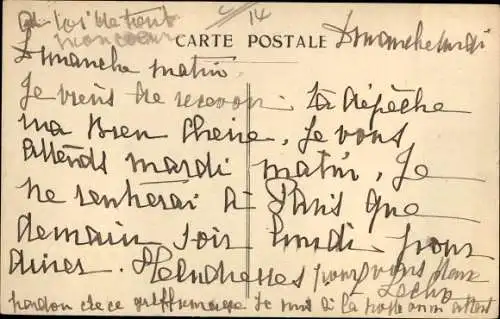 mon coeur
CARTE POSTALE
14
Dimanche midi
Dimanche matin.
Je viens de recevoir ta dépêche
ma Bien Cherie. Je vous
attends mardi matin. Je
ne rentrerai à Paris que
demain soir lundi pour
diner. Tendresses pour vous deux
pardon de ce griffonnage Je suis à la poste on m'attend